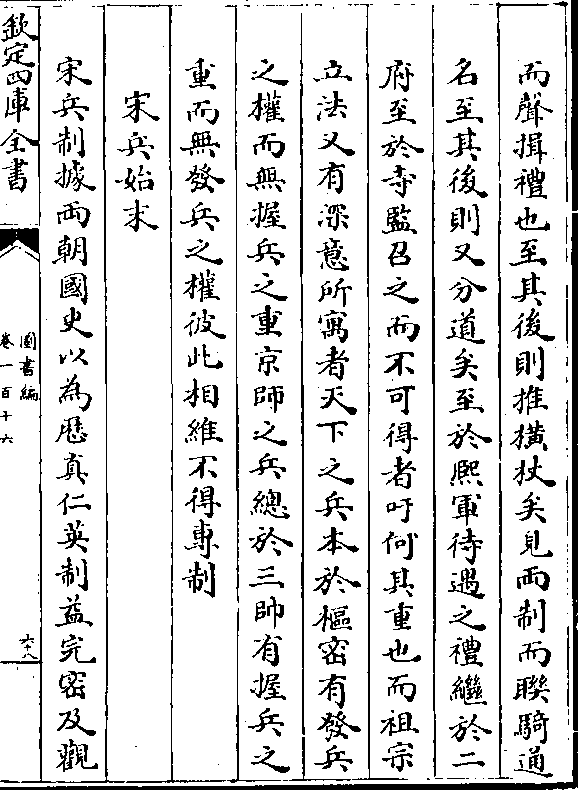 而聲揖禮也至其後則推橫杖矣見兩制而聨騎通
名至其後則又分道矣至於熙軍待遇之禮繼於二
府至於寺監召之而不可得者吁何其重也而祖宗
立法又有深意所寓者天下之兵本於樞密有發兵
之權而無握兵之重京師之兵總於三帥有握兵之
重而無發兵之權彼此相維不得專制
宋兵始末
宋兵制據兩朝國史以為歴真仁英制益完密及觀
欽定四庫全書
圖書編
卷一百十六
六十八